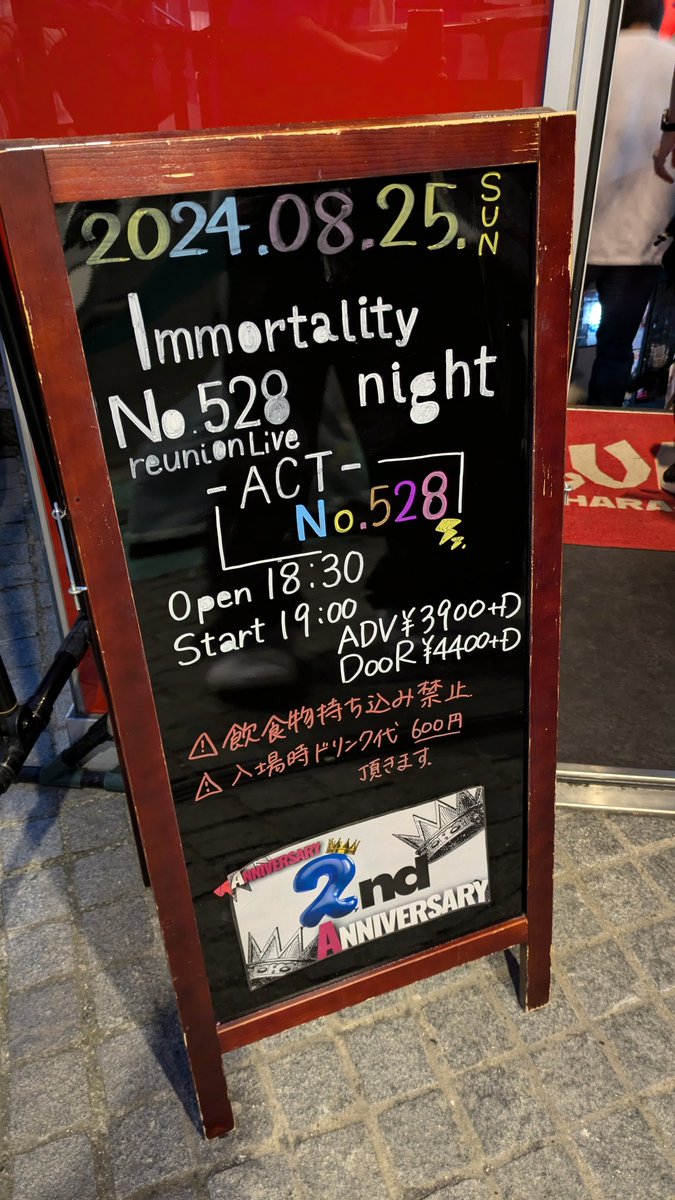 2024.08.25. SUN
Immortality
night
No.528
reunion Live
-ACT-
No.528
Open 18:30
Start 19:00
ADV ¥3900+D
DooR ¥4400+D
⚠飲食物持ち込み禁止.
⚠入場時ドリンク代 600円
頂きます.
ANNIVERSARY
2nd
ANNIVERSARY
HARA